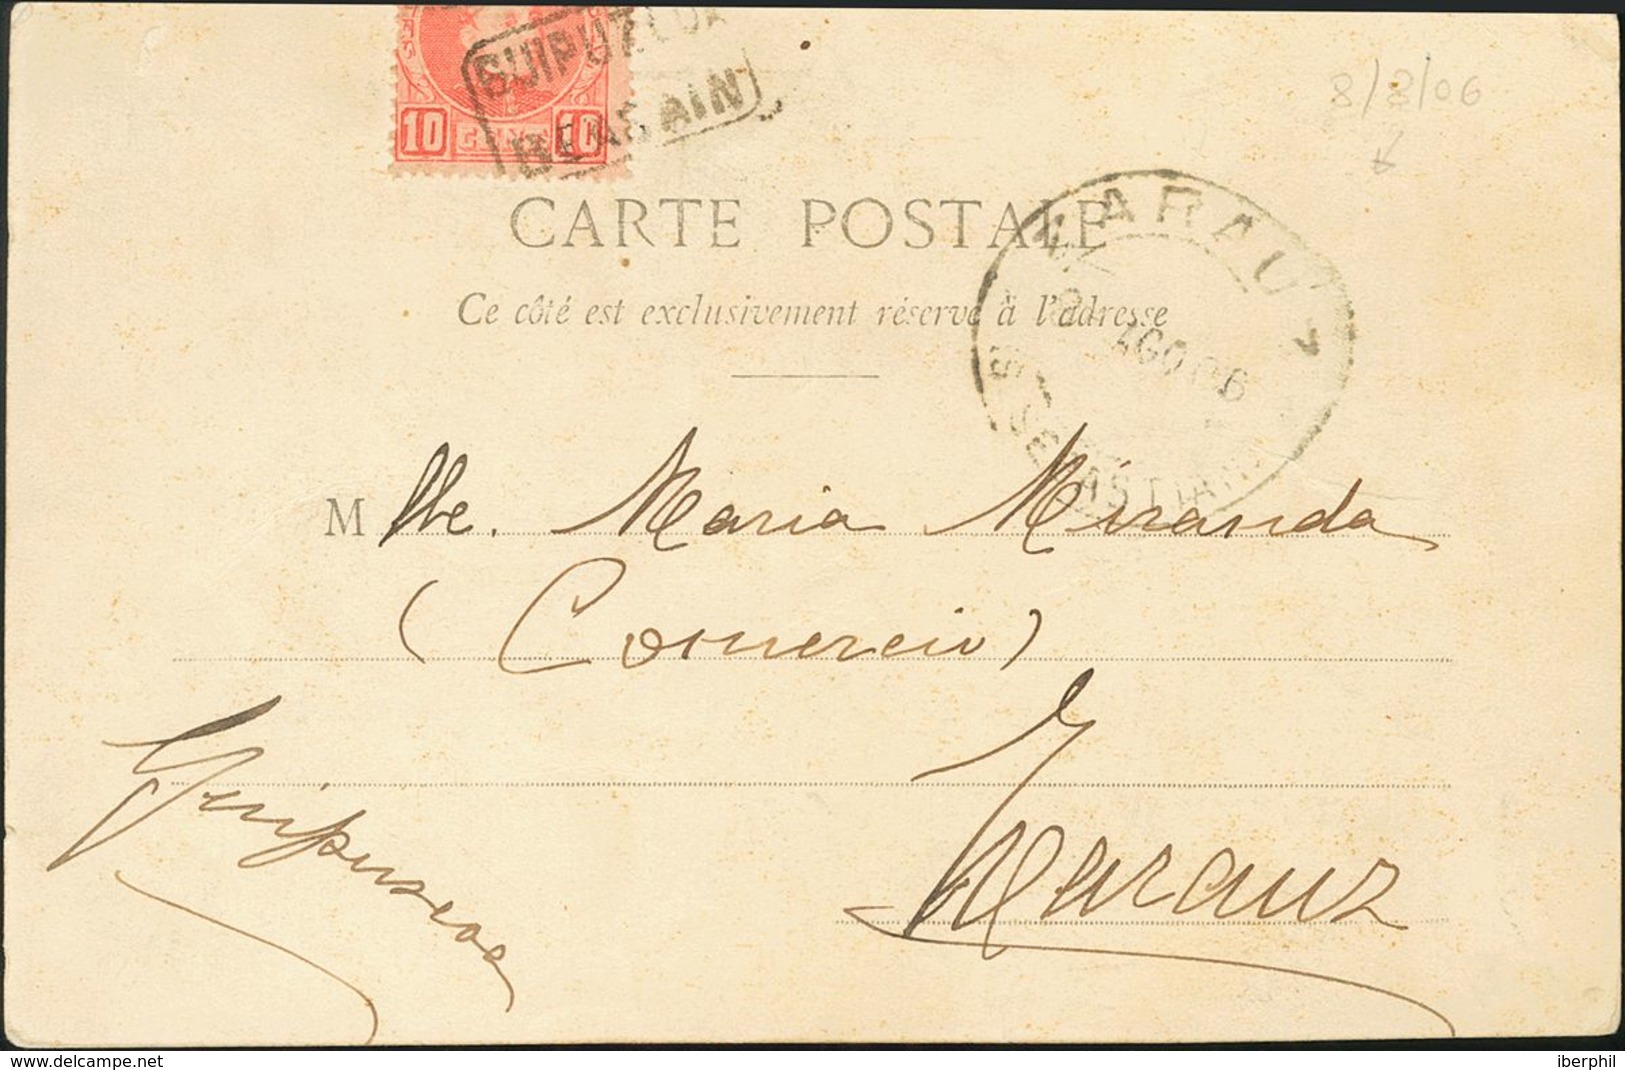 GUIPUZCOA
BEASAIN
10 CENT 10
8/8/06
CARTE POSTALE
Ce côté est exclusivement réservé à l'adresse
ZARAUZ
AGO 06
S. SEBASTIAN
Mlle. Maria Miranda
(Comercio)
Guipuzcoa
Zarauz
www.delcampe.net
iberphil